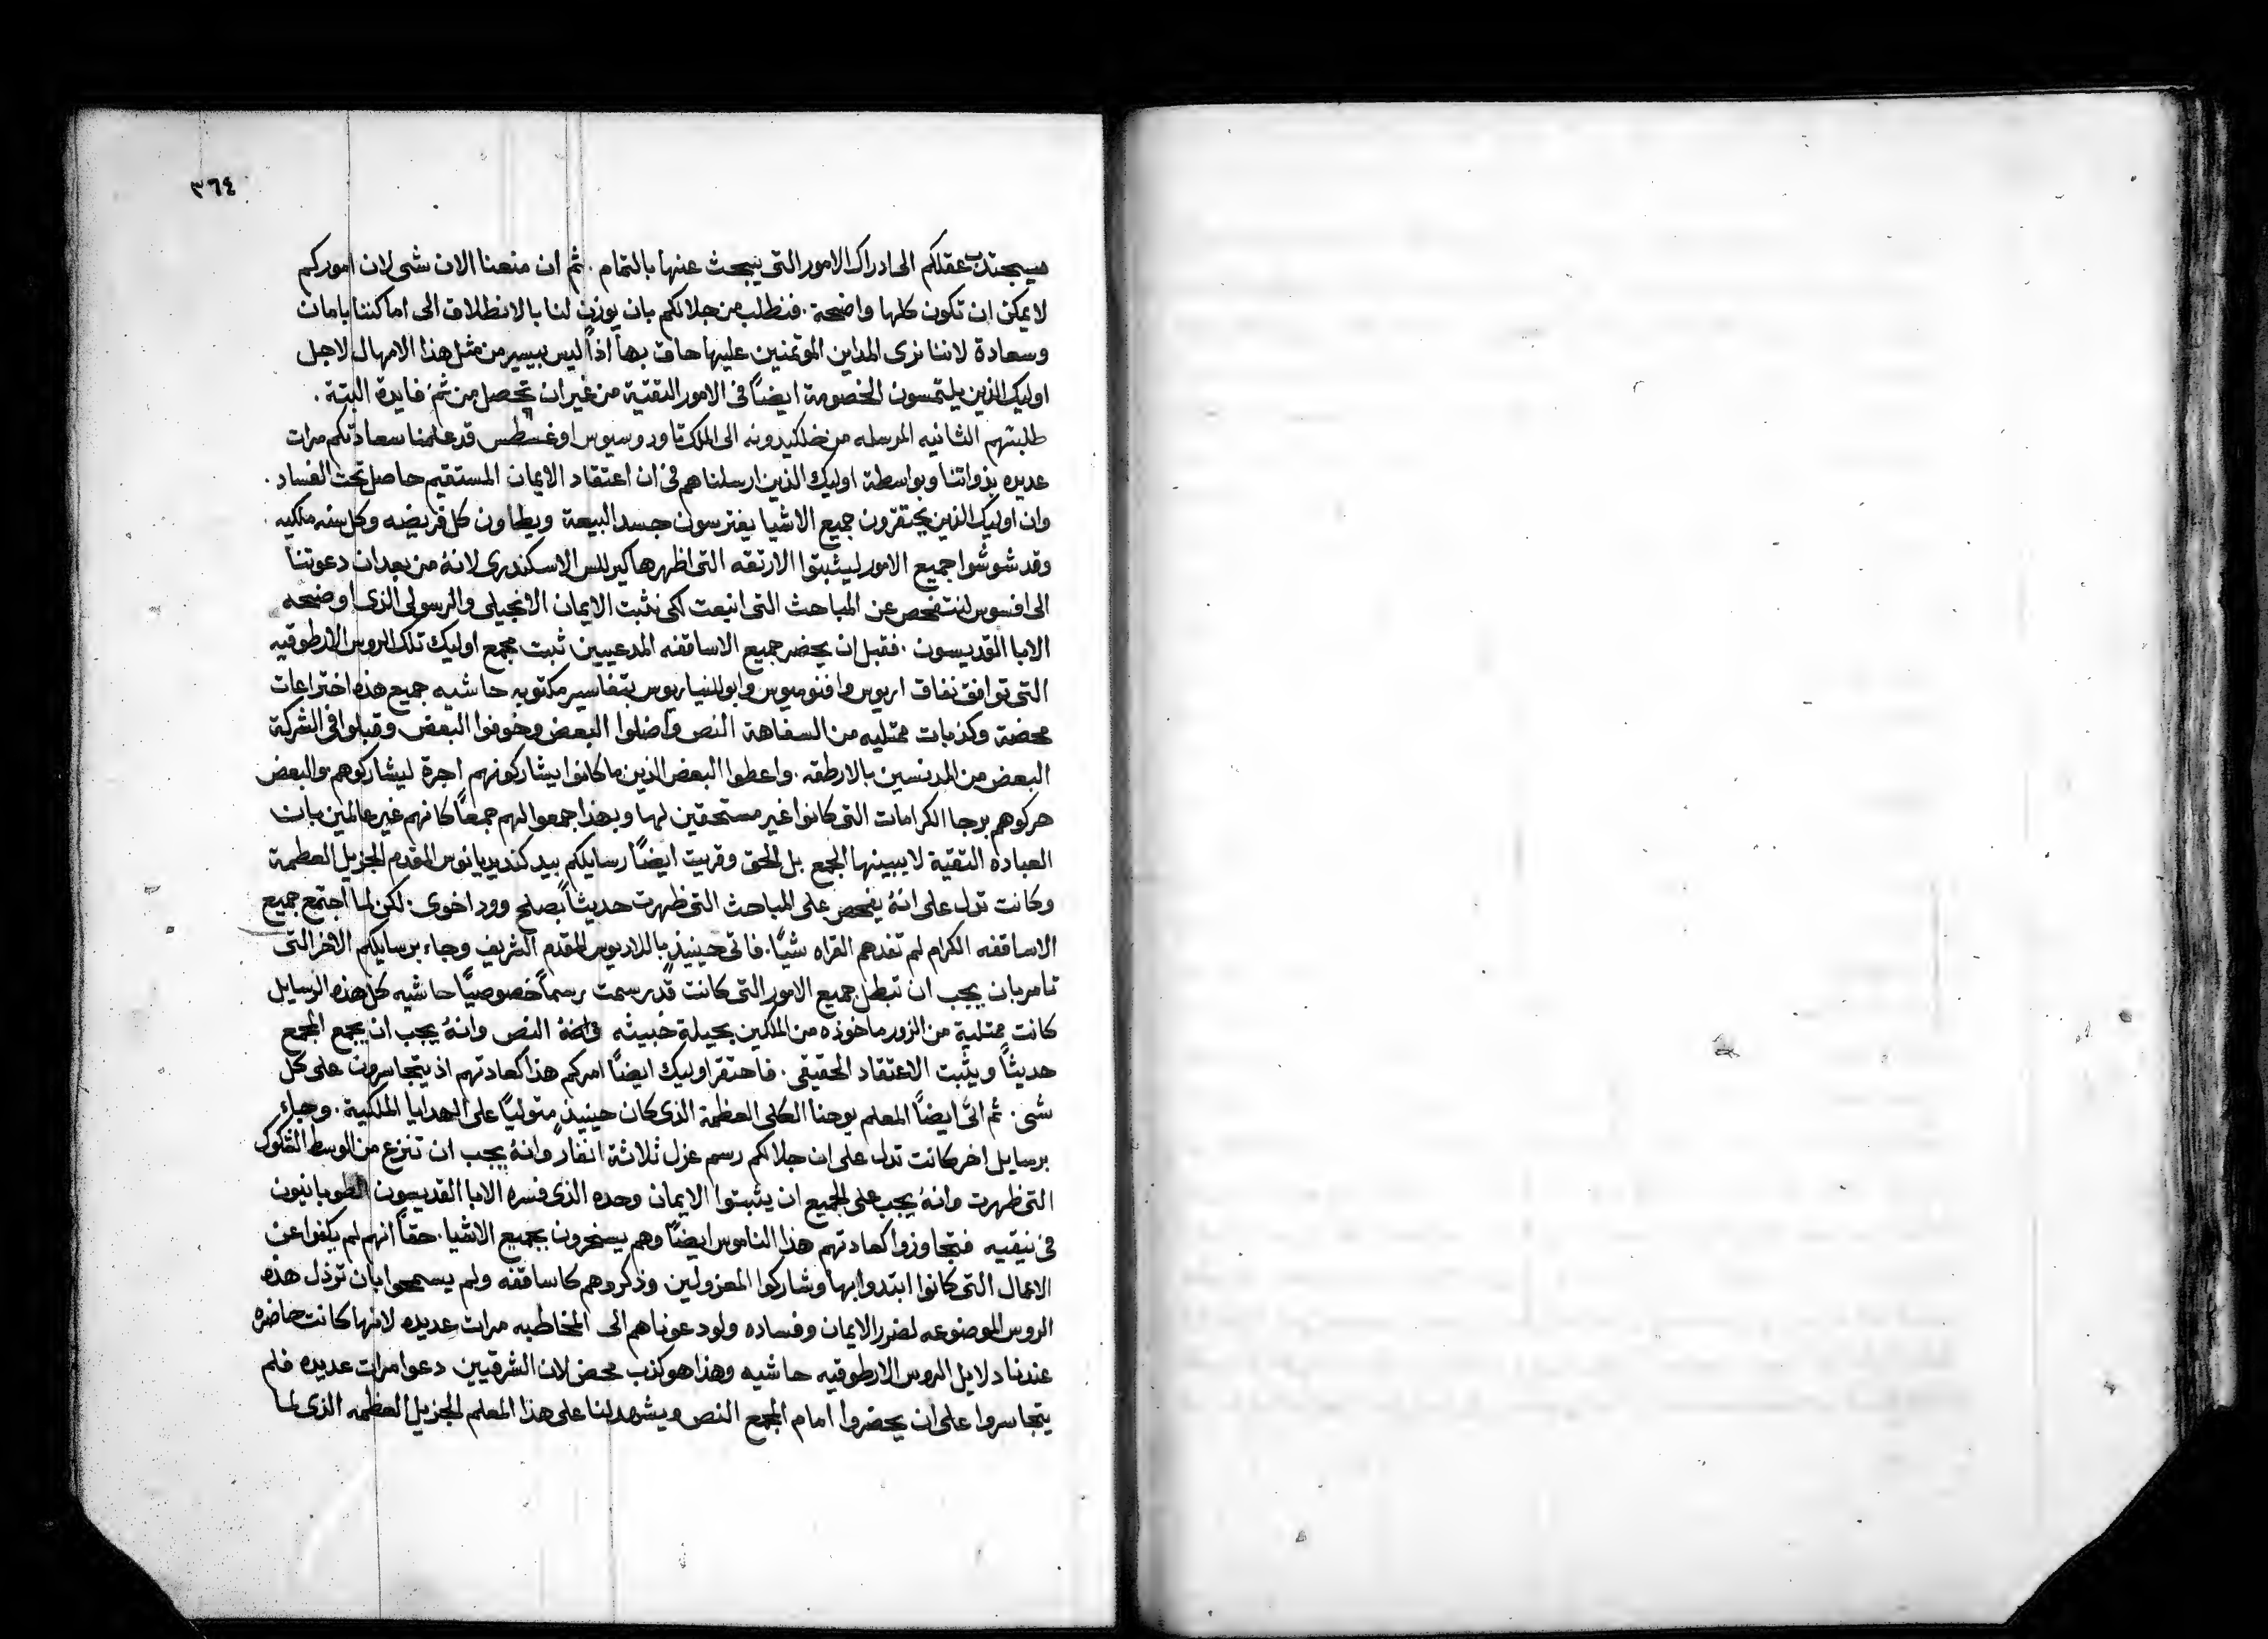 ٣٦٤
سيجتذب عقلكم الى ادراك الامور التى يبحث عنها بالتمام . ثم ان منعنا الان شى لان اموركم
لا يمكن ان تكون كلها واضحة . فنطلب من جلالكم بان يوذن لنا بالانطلاق الى اماكننا بامان
وسعادة لاننا نرى المداين الموتمنين عليها حاق بها اذاً ليس بيسير من مثل هذا الامهال لاجل
اوليك الذين يلتمسون الخصومة ايضاً فى الامور التقية من غير ان تحصل من ثم فايدة البتة .
طلبتهم الثانيه المرسله من خلكيدونه الى الملك تاودوسيوس اوغسطس قد علمنا سعادتكم مرات
عديده بذواتنا وبواسطة اوليك الذين ارسلناهم فى ان اعتقاد الايمان المستقيم حاصل تحت الفساد .
وان اوليك الذين يحتقرون جميع الاشيا يفترسون جسد البيعة ويطاون كل فريضه وكل سنه ملكيه .
وقد شوشوا جميع الامور ليثبتوا الارتقه التى اظهرها كيرللس الاسكندرى لانهُ من بعد ان دعوتنا
الى افسوس لنتفحص عن المباحث التى انبعت لكى نثبت الايمان الانجيلى والرسولى الذى اوضحه
الابا القديسون . فقبل ان يحضر جميع الاساقفه المدعيين ثبت مجمع اوليك تلك الروس الارطوقيه
التى توافق نفاق اريوس وافنوميوس وابوللنياريوس بتفاسير مكتوبه حاشيه جميع هذه اختراعات
محضة وكذبات ممتليه من السفاهة النص واضلوا البعض وخوفوا البعض وقبلوا فى الشركة
البعض من المدنسين بالارطقه . واعطوا البعض الذين ما كانوا يشاركونهم اجرة ليشاركوهم والبعض
حركوهم برجا الكرامات التى كانوا غير مستحقين لها وبهذا جمعوا لهم جمعاً كانهم غير عالمين بان
العباده التقية لا يبينها الجمع بل الحق وقريت ايضاً رسايلكم بيد كنديديانوس المقدم الجزيل العظمة
وكانت تدل على انهُ يفحص على المباحث التى ظهرت حديثاً بصلح وود اخوى . لكن لما اجتمع جميع
الاساقفه الكرام لم تفدهم القراه شيًا . فاتى حينيذٍ بالاديوس المقدم الشريف وجاء برسايلكم الاخر التى
تامر بان يجب ان تبطل جميع الامور التى كانت قد رسمت رسماً خصوصيًّا حاشيه كل هذه الرسايل
كانت ممتلية من الزور ماخوذه من الملكين بحيلة خبيثه النص وانهُ يجب ان يجمع المجمع
حديثاً ويثبت الاعتقاد الحقيقى . فاحتقر اوليك ايضاً امركم هذا كعادتهم اذ يتجاسرون على كل
شى . ثم اتى ايضاً المعلم يوحنا الكلى العظمة الذى كان حينيذٍ متوليًا على الهدايا الملكية . وجاء
برسايل اخر كانت تدل على ان جلالكم رسم عزل ثلاثة انفار وانهُ يجب ان تنزع من الوسط الشكوك
التى ظهرت وانهُ يجب على الجميع ان يثبتوا الايمان وحده الذى فسره الابا القديسون الطوبانيون
فى نيقيه فتجاوزوا كعادتهم هذا الناموس ايضاً وهم يسخرون بجميع الاشيا . حقاً انهم لم يكفوا عن
الاعمال التى كانوا ابتدوا بها وشاركوا المعزولين وذكروهم كاساقفه ولم يسمحوا بان ترذل هذه
الروس الموضوعه لضرر الايمان وفساده ولو دعوناهم الى المخاطبه مرات عديده لانها كانت حاضره
عندنا دلايل الروس الارطوقيه حاشيه وهذا هو كذب محض لان الشرقيين دعوا مرات عديده فلم
يتجاسروا على ان يحضروا امام المجمع النص ويشهد لنا على هذا المعلم الجزيل العظمه الذى لما